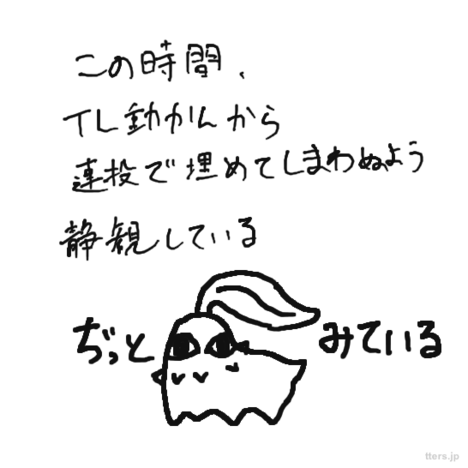 この時間、
TL動かんから
連投で埋めてしまわぬよう
静観している
ぢっと みている
tters.jp